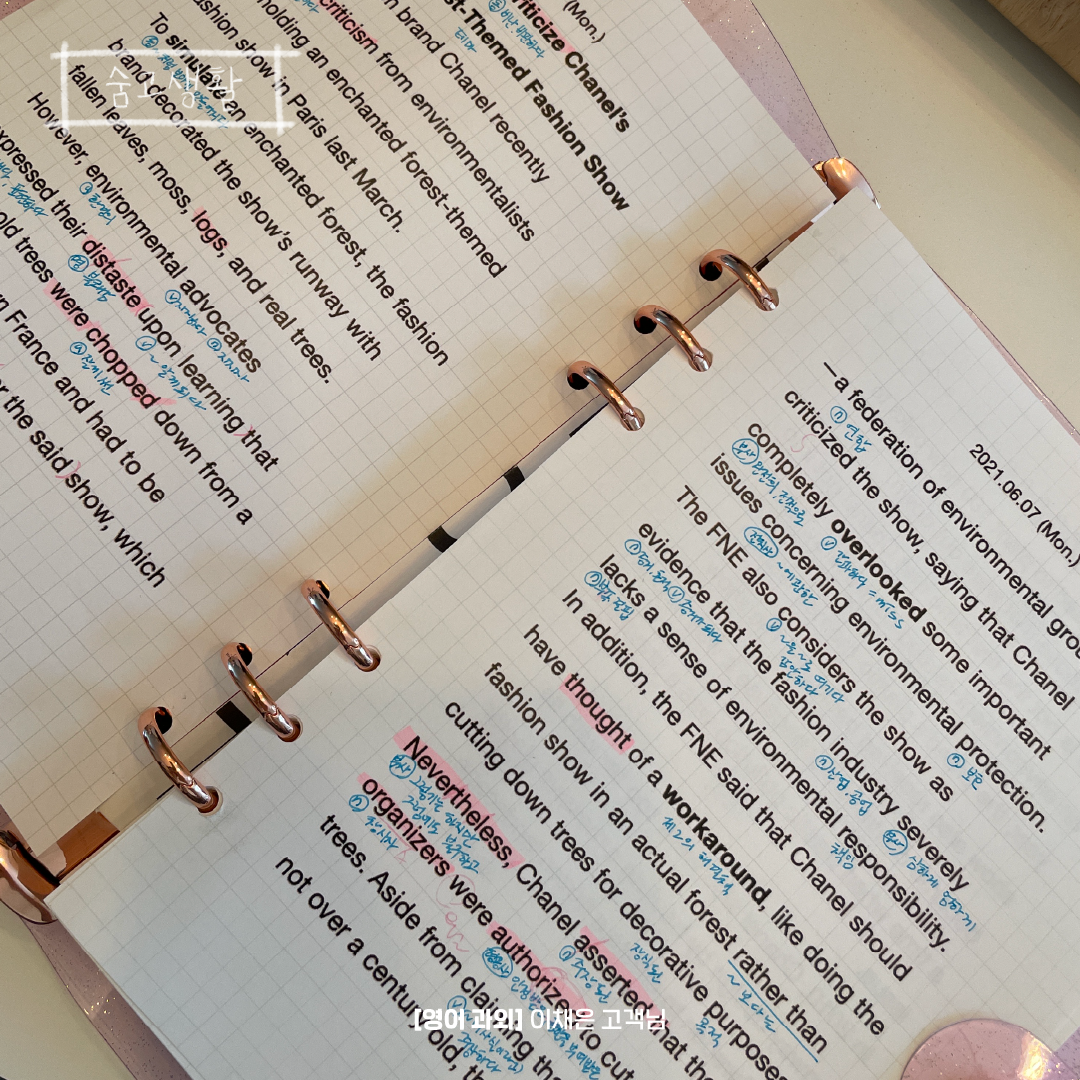 숨고생활
(Mon.)
criticize Chanel's
st-Themed Fashion Show
brand Chanel recently
criticism from environmentalists
holding an enchanted forest-themed
fashion show in Paris last March.
To simulate an enchanted forest, the fashion
brand decorated the show's runway with
fallen leaves, moss, logs, and real trees.
However, environmental advocates
expressed their distaste upon learning that
old trees were chopped down from a
France and had to be
the said show, which
2021.06.07 (Mon.)
—a federation of environmental grou
① 연합
criticized the show, saying that Chanel
completely overlooked some important
부사 완전히, 전적으로
ⓥ 간과하다 = miss
issues concerning environmental protection.
전치사 ~에 관한
ⓝ 보호
The FNE also considers the show as
ⓥ ~을 ~로 여기다
evidence that the fashion industry severely
ⓝ 산업, 공업
부사 심하게, 엄하게
lacks a sense of environmental responsibility.
책임
In addition, the FNE said that Chanel should
have thought of a workaround, like doing the
제2의 해결책
fashion show in an actual forest rather than
~보다는
cutting down trees for decorative purposes
장식된
목적
Nevertheless, Chanel asserted that the
부사 그렇기는 하지만
그럼에도 불구하고
ⓝ 주장된
organizers were authorized to cut
trees. Aside from claiming tha
not over a century old, th
[영어 과외] 이재은 고객님